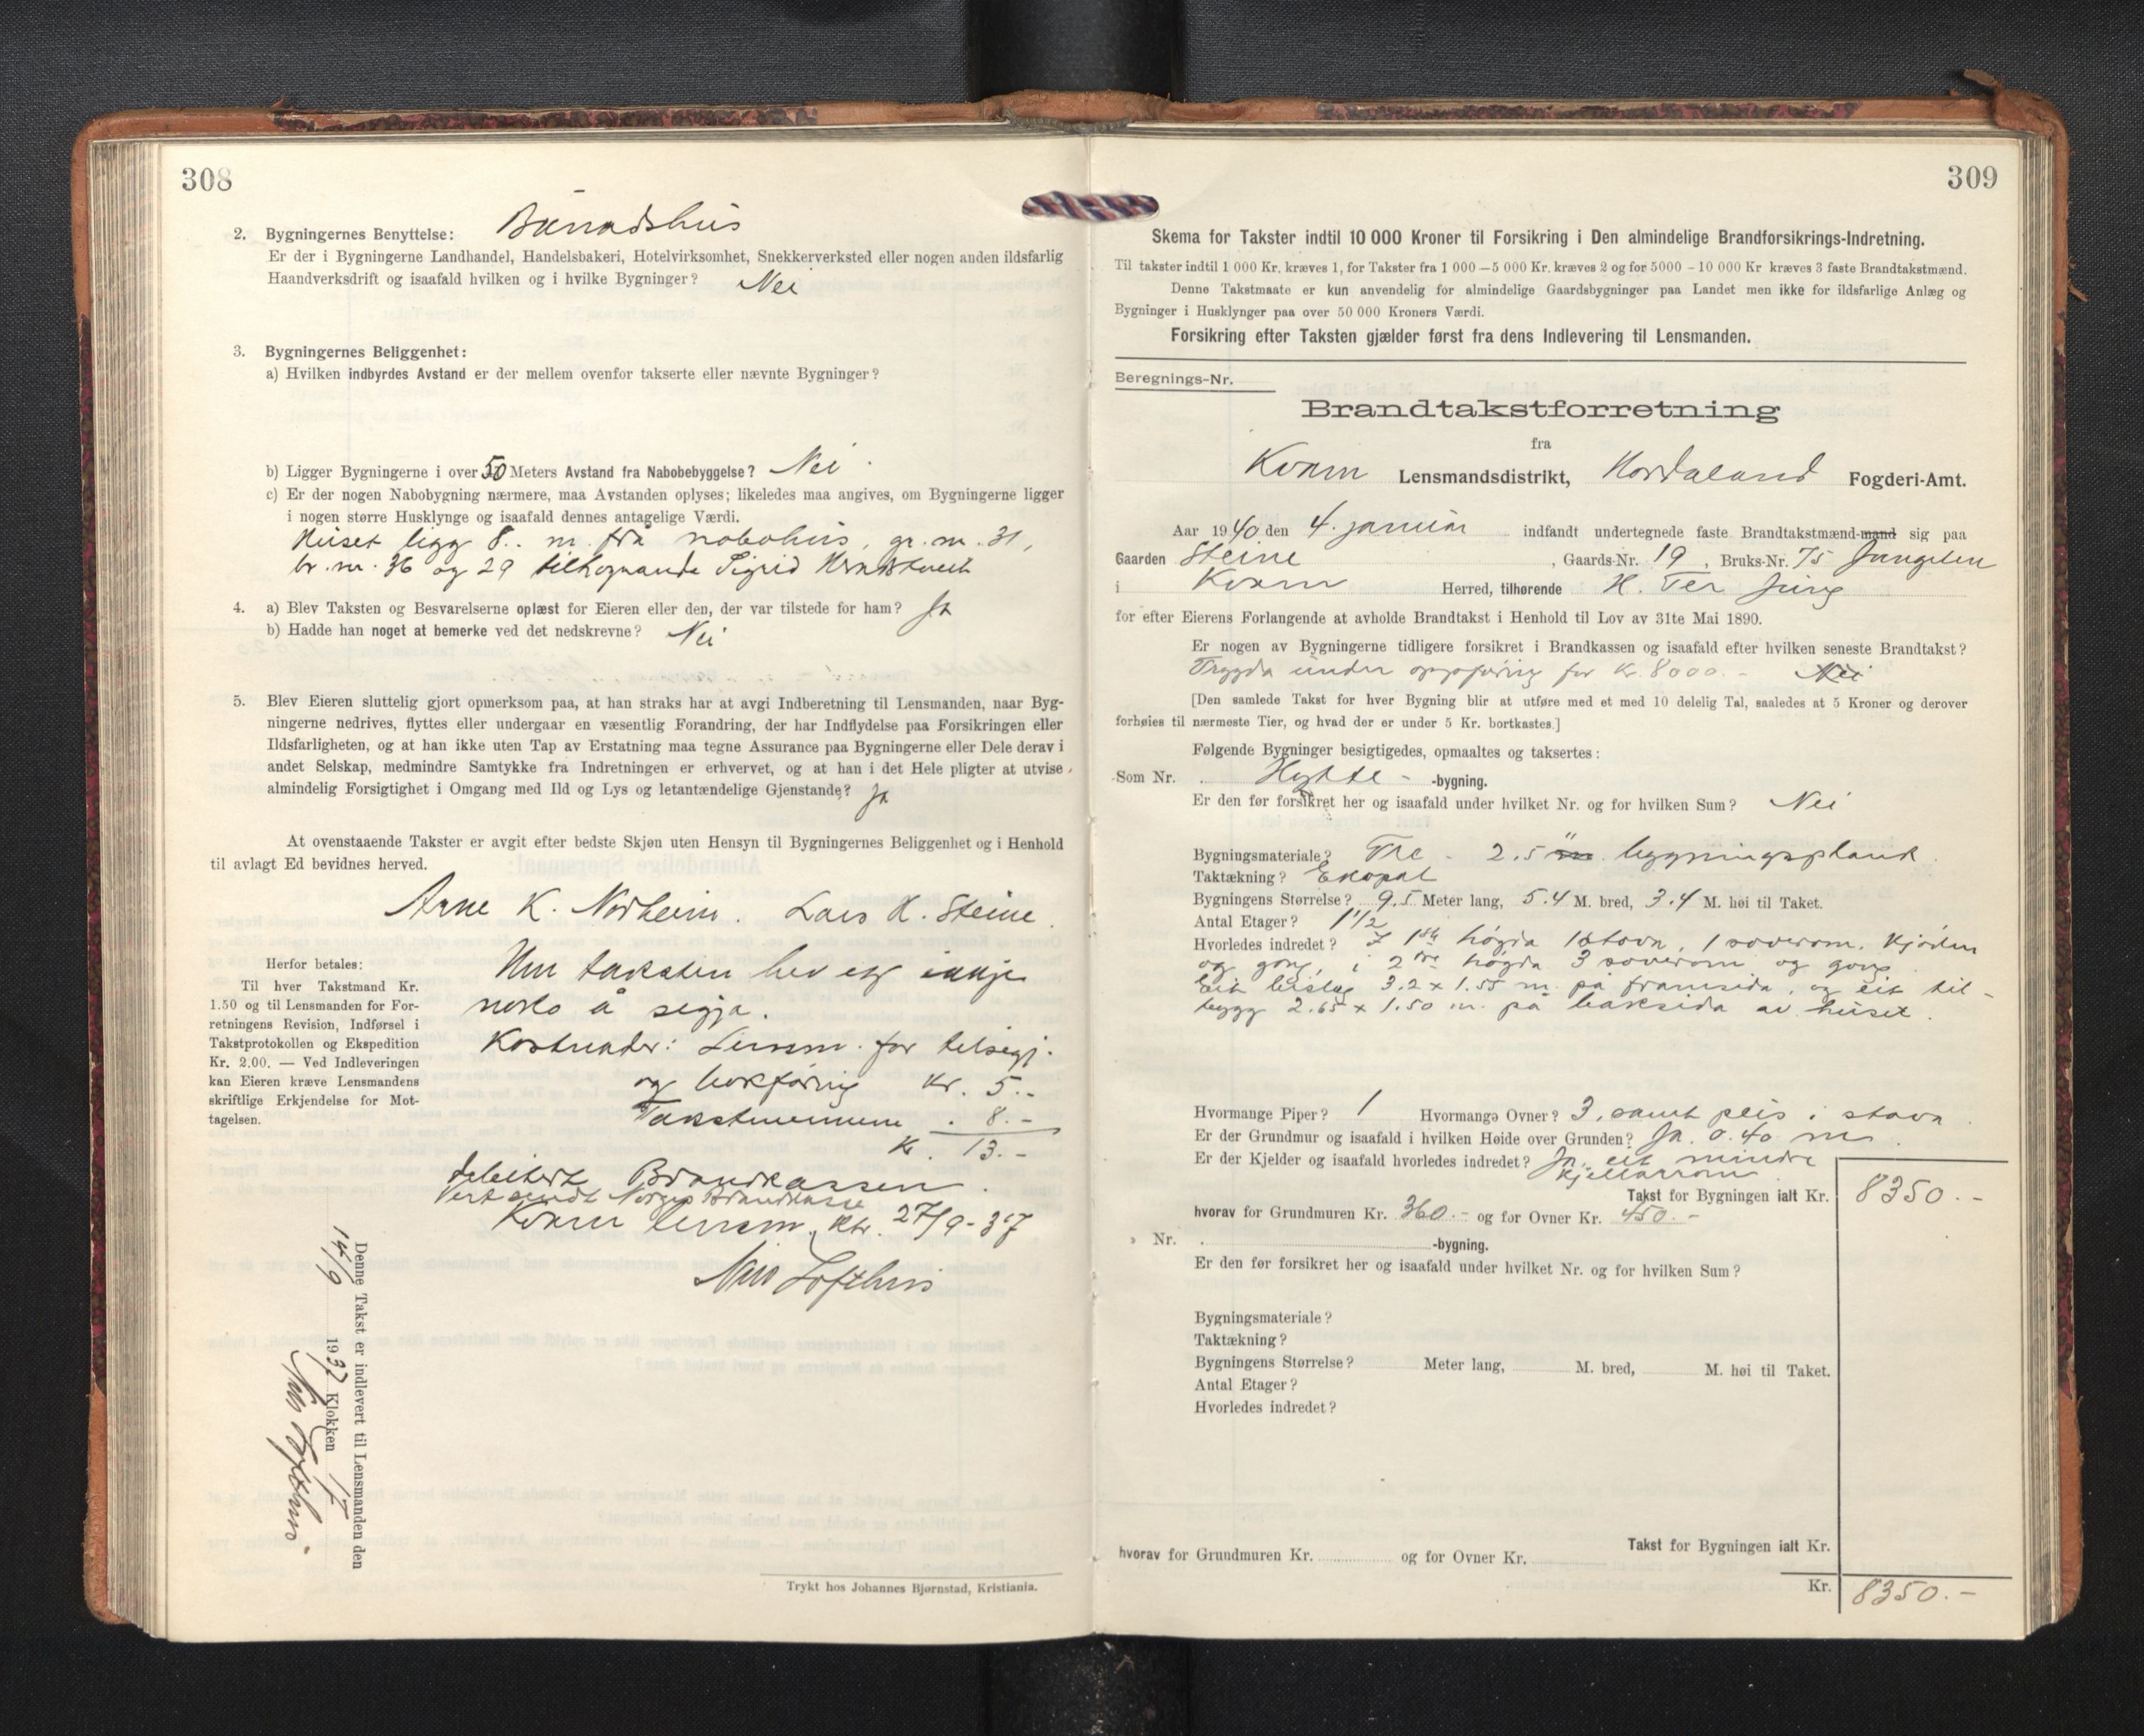 308
2. Bygningernes Benyttelse: Bunadshus
Er der i Bygningerne Landhandel, Handelsbakeri, Hotelvirksomhet, Snekkerverksted eller nogen anden ildsfarlig
Haandverksdrift og isaafald hvilken og i hvilke Bygninger? Nei
3. Bygningernes Beliggenhet:
a) Hvilken indbyrdes Avstand er der mellem ovenfor takserte eller nævnte Bygninger?
b) Ligger Bygningerne i over 50 Meters Avstand fra Nabobebyggelse? Nei.
c) Er der nogen Nabobygning nærmere, maa Avstanden oplyses; likeledes maa angives, om Bygningerne ligger
i nogen større Husklynge og isaafald dennes antagelige Værdi.
Huset ligg 8.. m. frå nabohus, gr. nr. 31,
br. nr. 36 og 29 tilhøyrande Sigrid
4. a) Blev Taksten og Besvarelserne oplæst for Eieren eller den, der var tilstede for ham? Ja
b) Hadde han noget at bemerke ved det nedskrevne? Nei
5. Blev Eieren sluttelig gjort opmerksom paa, at han straks har at avgi Indberetning til Lensmanden, naar Byg-
ningerne nedrives, flyttes eller undergaar en væsentlig Forandring, der har Indflydelse paa Forsikringen eller
Ildsfarligheten, og at han ikke uten Tap av Erstatning maa tegne Assurance paa Bygningerne eller Dele derav i
andet Selskap, medmindre Samtykke fra Indretningen er erhvervet, og at han i det Hele pligter at utvise
almindelig Forsigtighet i Omgang med Ild og Lys og letantændelige Gjenstande? Ja
At ovenstaaende Takster er avgit efter bedste Skjøn uten Hensyn til Bygningernes Beliggenhet og i Henhold
til avlagt Ed bevidnes herved.
Arne K. Norheim. Lars K. Steine.
Um taksten hev eg ikkje
noko å segja.
Kostnader: Lensm. for tilsegj.
og bokføring kr. 5.-
Takstmennene . 8.-
Kr. 13.-
debitert Brandkassen.
Vert sendt Norges Brandkasse
Kvam lensm. ktr. 27/9-37
Nils Lofthus
Herfor betales:
Til hver Takstmand Kr.
1.50 og til Lensmanden for For-
retningens Revision, Indførsel i
Takstprotokollen og Ekspedition
Kr. 2.00. — Ved Indleveringen
kan Eieren kræve Lensmandens
skriftlige Erkjendelse for Mot-
tagelsen.
Denne Takst er indlevert til Lensmanden den
14/9 1937 Klokken 17
Nils Lofthus.
Trykt hos Johannes Bjørnstad, Kristiania.
309
Skema for Takster indtil 10 000 Kroner til Forsikring i Den almindelige Brandforsikrings-Indretning.
Til takster indtil 1 000 Kr. kræves 1, for Takster fra 1 000—5 000 Kr. kræves 2 og for 5000 - 10 000 Kr kræves 3 faste Brandtakstmænd.
Denne Takstmaate er kun anvendelig for almindelige Gaardsbygninger paa Landet men ikke for ildsfarlige Anlæg og
Bygninger i Husklynger paa over 50 000 Kroners Værdi.
Forsikring efter Taksten gjælder først fra dens Indlevering til Lensmanden.
Beregnings-Nr.
Brandtakstforretning
fra
Kvam Lensmandsdistrikt, Hordaland Fogderi-Amt.
Aar 1940 den 4. januar indfandt undertegnede faste Brandtakstmænd-mand sig paa
Gaarden Steine, Gaards-Nr. 19, Bruks-Nr. 75
i Kvam Herred, tilhørende H. Ter Jung
for efter Eierens Forlangende at avholde Brandtakst i Henhold til Lov av 31te Mai 1890.
Er nogen av Bygningerne tidligere forsikret i Brandkassen og isaafald efter hvilken seneste Brandtakst?
Trygda under oppføring for kr. 8000.- Nei
[Den samlede Takst for hver Bygning blir at utføre med et med 10 delelig Tal, saaledes at 5 Kroner og derover
forhøies til nærmeste Tier, og hvad der er under 5 Kr. bortkastes.]
Følgende Bygninger besigtigedes, opmaaltes og taksertes:
Som Nr. Hytte- -bygning.
Er den før forsikret her og isaafald under hvilket Nr. og for hvilken Sum? Nei
Bygningsmateriale? Tre - 2.5" m. bygningsplank.
Taktækning? Ekopal
Bygningens Størrelse? 9.5 Meter lang, 5.4 M. bred, 3.4 M. høi til Taket.
Antal Etager? 1 1/2
Hvorledes indredet? I 1ste høgda 1 stova, 1 soverom, kjøken
og gong, i 2dre høgda 3 soverom og gong.
Eit bislag 3.2 x 1.55 m. på framsida, og eit til-
bygg 2.65 x 1.50 m. på baksida av huset.
Hvormange Piper? 1 Hvormange Ovner? 3, samt peis i stova
Er der Grundmur og isaafald i hvilken Høide over Grunden? Ja. 0.40 m.
Er der Kjelder og isaafald hvorledes indredet? Ja, eit mindre
kjellarrom
Takst for Bygningen ialt Kr. 8350.-
hvorav for Grundmuren Kr. 360.- og for Ovner Kr. 450.-
» Nr. -bygning.
Er den før forsikret her og isaafald under hvilket Nr. og for hvilken Sum?
Bygningsmateriale?
Taktækning?
Bygningens Størrelse? Meter lang, M. bred, M. høi til Taket.
Antal Etager?
Hvorledes indredet?
Takst for Bygningen ialt Kr.
hvorav for Grundmuren Kr. og for Ovner Kr.
Kr. 8350.-